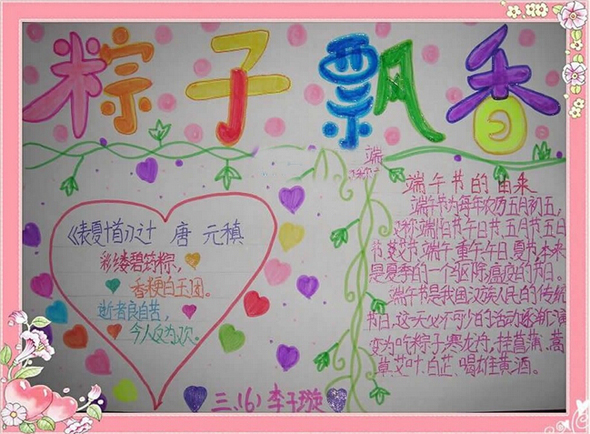 粽子飘香
端
《表夏十首》之十 唐 元稹
彩缕碧筠粽,
香粳白玉团。
逝者良自苦,
今人反为欢。
三、(6) 李子璇
端午节的由来
端午节为每年农历五月初五,
又称端阳节、午日节、五月节、五日
节、艾节、端午、重午、午日、夏节,本来
是夏季的一个驱除瘟疫的节日。
端午节是我国汉族人民的传统
节日,这一天必不可少的活动逐渐演
变为吃粽子,赛龙舟,挂菖蒲、蒿
草、艾叶、白芷,喝雄黄酒。